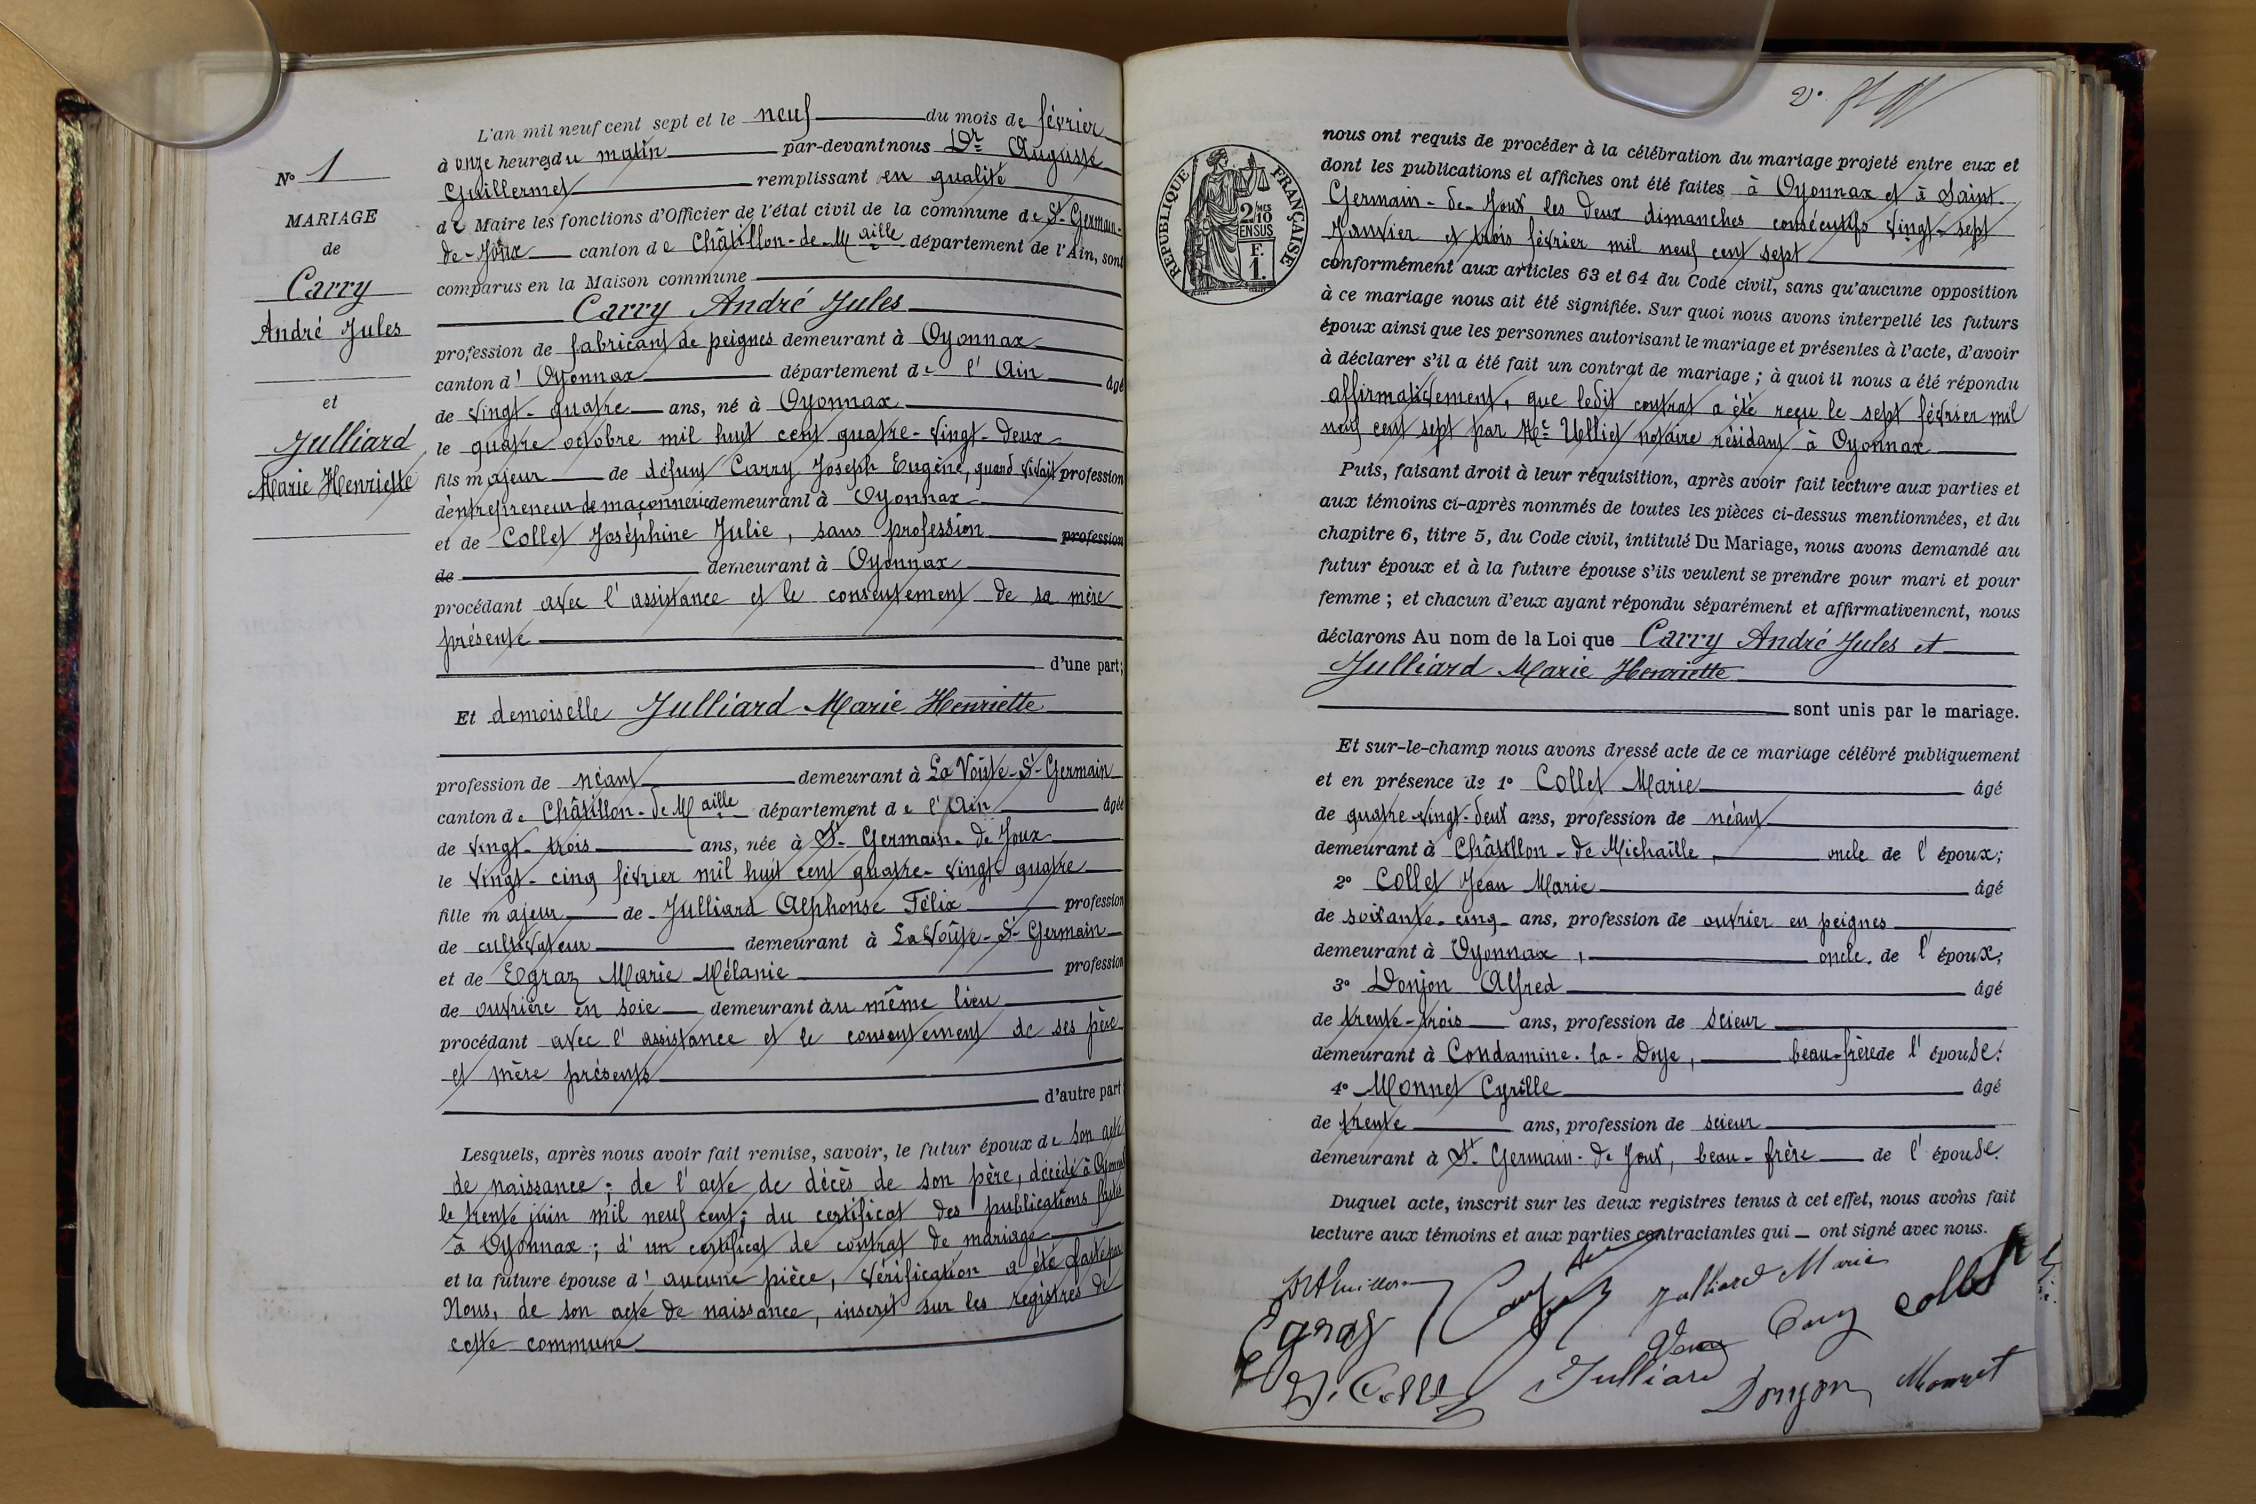 N° 1
MARIAGE
de
Carry
André Jules
et
Julliard
Marie Henriette
L'an mil neuf cent sept et le neuf du mois de février
à onze heures du matin par-devant nous Dr Auguste
Guillermet remplissant en qualité
de Maire les fonctions d'Officier de l'état civil de la commune de St-Germain-
de-Joux canton de Châtillon-de-Maille département de l'Ain, sont
comparus en la Maison commune
Carry André Jules
profession de fabricant de peignes demeurant à Oyonnax
canton d' Oyonnax département de l'Ain âgé
de vingt-quatre ans, né à Oyonnax
le quatre octobre mil huit cent quatre-vingt-deux
fils majeur de défunt Carry Joseph Eugène, quand vivait profession
d'entrepreneur de maçonnerie demeurant à Oyonnax
et de Collet Joséphine Julie, sans profession profession
de demeurant à Oyonnax
procédant avec l'assistance et le consentement de sa mère
présente
d'une part;
Et demoiselle Julliard Marie Henriette
profession de néant demeurant à La Voûte-St-Germain
canton de Châtillon-de Maille département de l'Ain âgée
de vingt-trois ans, née à St-Germain-de Joux
le vingt-cinq février mil huit cent quatre-vingt quatre
fille majeur de Julliard Alphonse Félix profession
de cultivateur demeurant à La Voûte-St-Germain
et de Egraz Marie Mélanie profession
de ouvrière en soie demeurant au même lieu
procédant avec l'assistance et le consentement de ses père
et mère présents
d'autre part;
Lesquels, après nous avoir fait remise, savoir, le futur époux de son acte
de naissance; de l'acte de décès de son père, décédé à Oyonnax
le trente juin mil neuf cent; du certificat des publications faites
à Oyonnax; d'un certificat de contrat de mariage
et la future épouse d'aucune pièce, vérification a été faite par
Nous, de son acte de naissance, inscrit sur les registres de
cette commune
2°
REPUBLIQUE FRANÇAISE
2/MES
10
EN SUS
F.
1.
nous ont requis de procéder à la célébration du mariage projeté entre eux et
dont les publications et affiches ont été faites à Oyonnax et à Saint-
Germain-de-Joux les deux dimanches consécutifs vingt-sept
Janvier et trois février mil neuf cent sept
conformément aux articles 63 et 64 du Code civil, sans qu'aucune opposition
à ce mariage nous ait été signifiée. Sur quoi nous avons interpellé les futurs
époux ainsi que les personnes autorisant le mariage et présentes à l'acte, d'avoir
à déclarer s'il a été fait un contrat de mariage; à quoi il nous a été répondu
affirmativement, que ledit contrat a été reçu le sept février mil
neuf cent sept par Me Ulliet notaire résidant à Oyonnax
Puis, faisant droit à leur réquisition, après avoir fait lecture aux parties et
aux témoins ci-après nommés de toutes les pièces ci-dessus mentionnées, et du
chapitre 6, titre 5, du Code civil, intitulé Du Mariage, nous avons demandé au
futur époux et à la future épouse s'ils veulent se prendre pour mari et pour
femme; et chacun d'eux ayant répondu séparément et affirmativement, nous
déclarons Au nom de la Loi que Carry André Jules et
Julliard Marie Henriette
sont unis par le mariage.
Et sur-le-champ nous avons dressé acte de ce mariage célébré publiquement
et en présence de 1° Collet Marie âgé
de quatre-vingt-deux ans, profession de néant
demeurant à Châtillon-de Michaille, oncle de l'époux;
2° Collet Jean Marie âgé
de soixante-cinq ans, profession de ouvrier en peignes
demeurant à Oyonnax, oncle de l'époux;
3° Donjon Alfred âgé
de trente-trois ans, profession de scieur
demeurant à Condamine-la-Doye, beau-frère de l'épouse;
4° Monnet Cyrille âgé
de trente ans, profession de scieur
demeurant à St-Germain-de Joux, beau-frère de l'épouse.
Duquel acte, inscrit sur les deux registres tenus à cet effet, nous avons fait
lecture aux témoins et aux parties contractantes qui ont signé avec nous.
Julliard Marie
Julliard Donjon Monnet